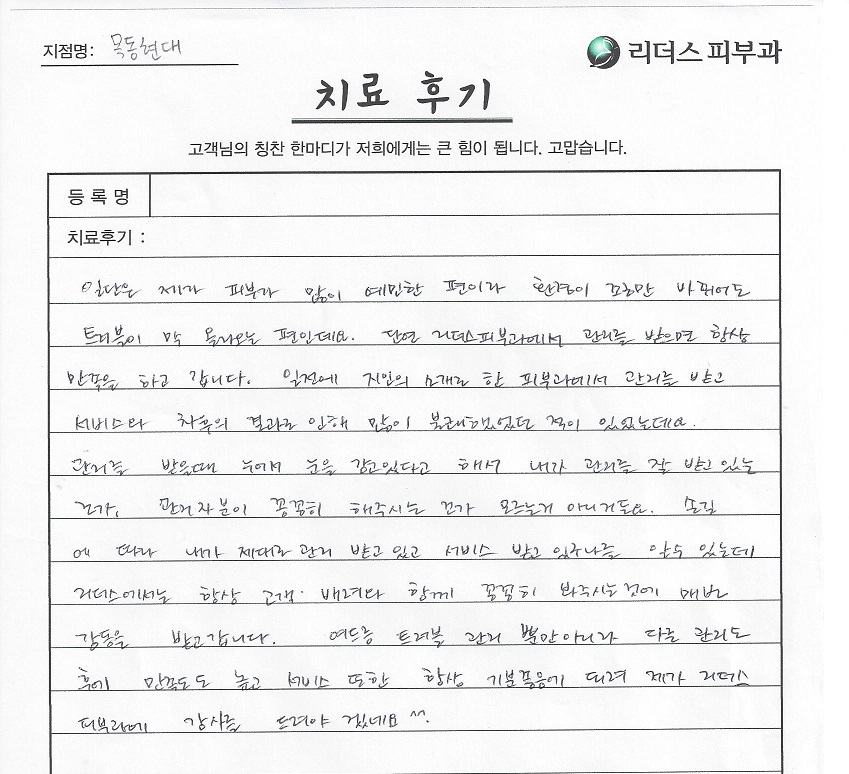 지점명: 목동현대
리더스 피부과
치료 후기
고객님의 칭찬 한마디가 저희에게는 큰 힘이 됩니다. 고맙습니다.
등록명
치료후기 :
일단은 제가 피부가 많이 예민한 편이라 환경이 조금만 바뀌어도
트러블이 막 올라오는 편인데요. 단연 리더스피부과에서 관리를 받으면 항상
만족을 하고 갑니다. 일전에 지인의 소개로 한 피부과에서 관리를 받고
서비스와 차후의 결과로 인해 많이 불쾌했었던 적이 있었는데요.
관리를 받을때 누워서 눈을 감고있다고 해서 내가 관리를 잘 받고 있는
건가, 관리자분이 꼼꼼히 해주시는 건가 모르는게 아니거든요. 손길
에 따라 내가 제대로 관리 받고 있고 서비스 받고 있구나를 알수 있는데
리더스에서는 항상 고객 배려와 함께 꼼꼼히 봐주시는것에 매번
감동을 받고갑니다. 여드름 트러블 관리 뿐만아니라 다른 관리도
후에 만족도도 높고 서비스 또한 항상 기분좋음에 되려 제가 리더스
피부과에 감사를 드려야 겠네요 ^^.